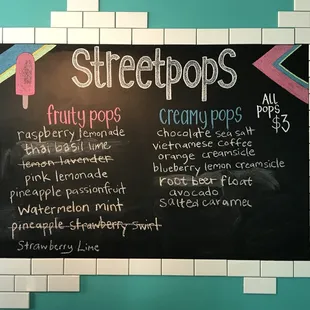 streetpops
ALL
POPS
$3
fruity pops
raspberry lemonade
thai basil lime
lemon lavender
pink lemonade
pineapple passionfruit
watermelon mint
pineapple strawberry swirl
Strawberry Lime
creamy pops
chocolate sea salt
vietnamese coffee
orange creamsicle
blueberry lemon creamsicle
root beer float
avocado
salted caramel